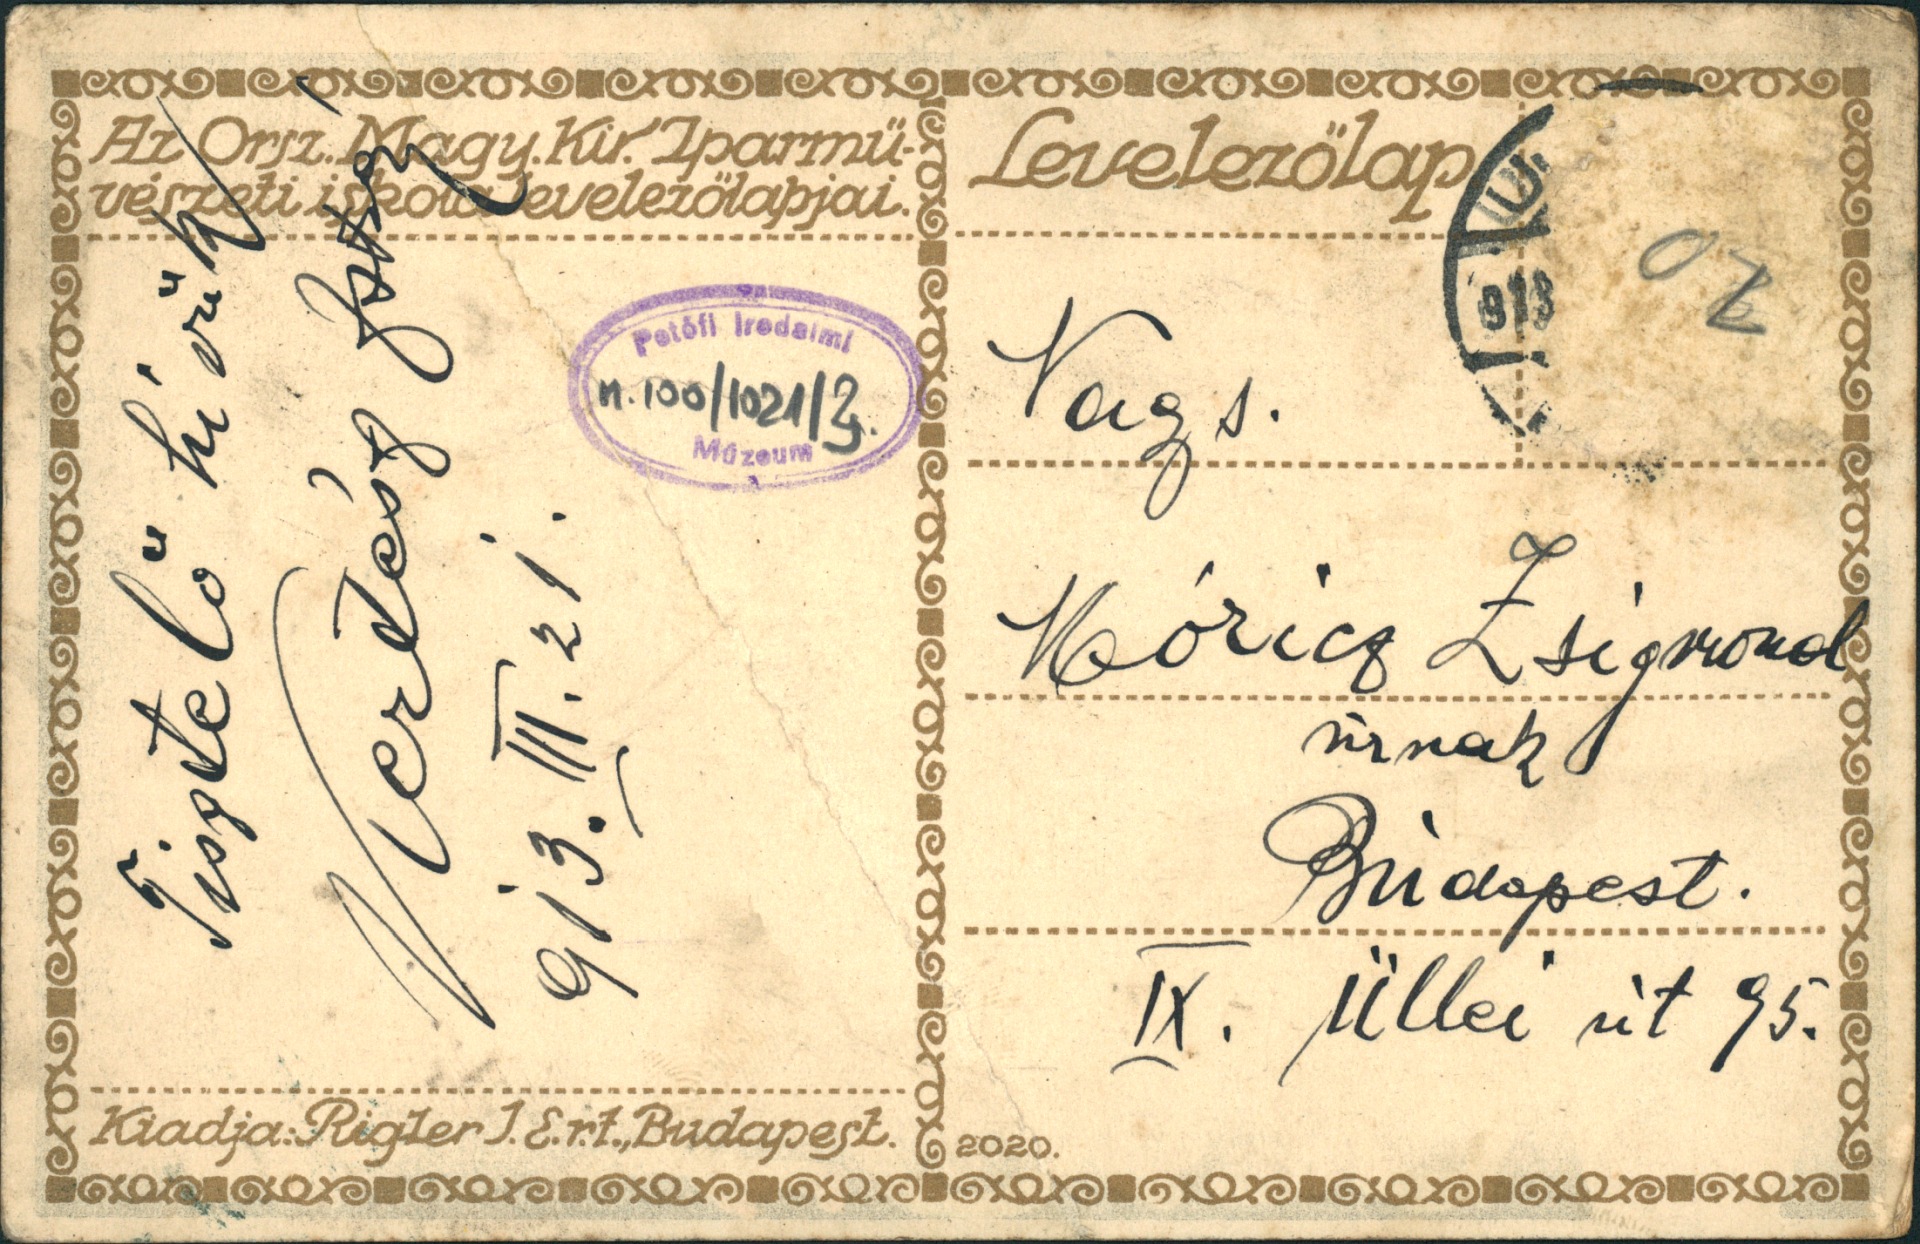 Az Orsz. Magy. Kir. Iparmű-
vészeti iskola levelezőlapjai.
Tisztelő hívük
Vertész József
913. III. 21.
Petőfi Irodalmi
n. 100/1021/3.
Múzeum
Kiadja: Rigler J. E. r.t., Budapest.
Levelezőlap
913
Nags.
Móricz Zsigmond
úrnak
Budapest.
IX. Üllei út 95.
2020.